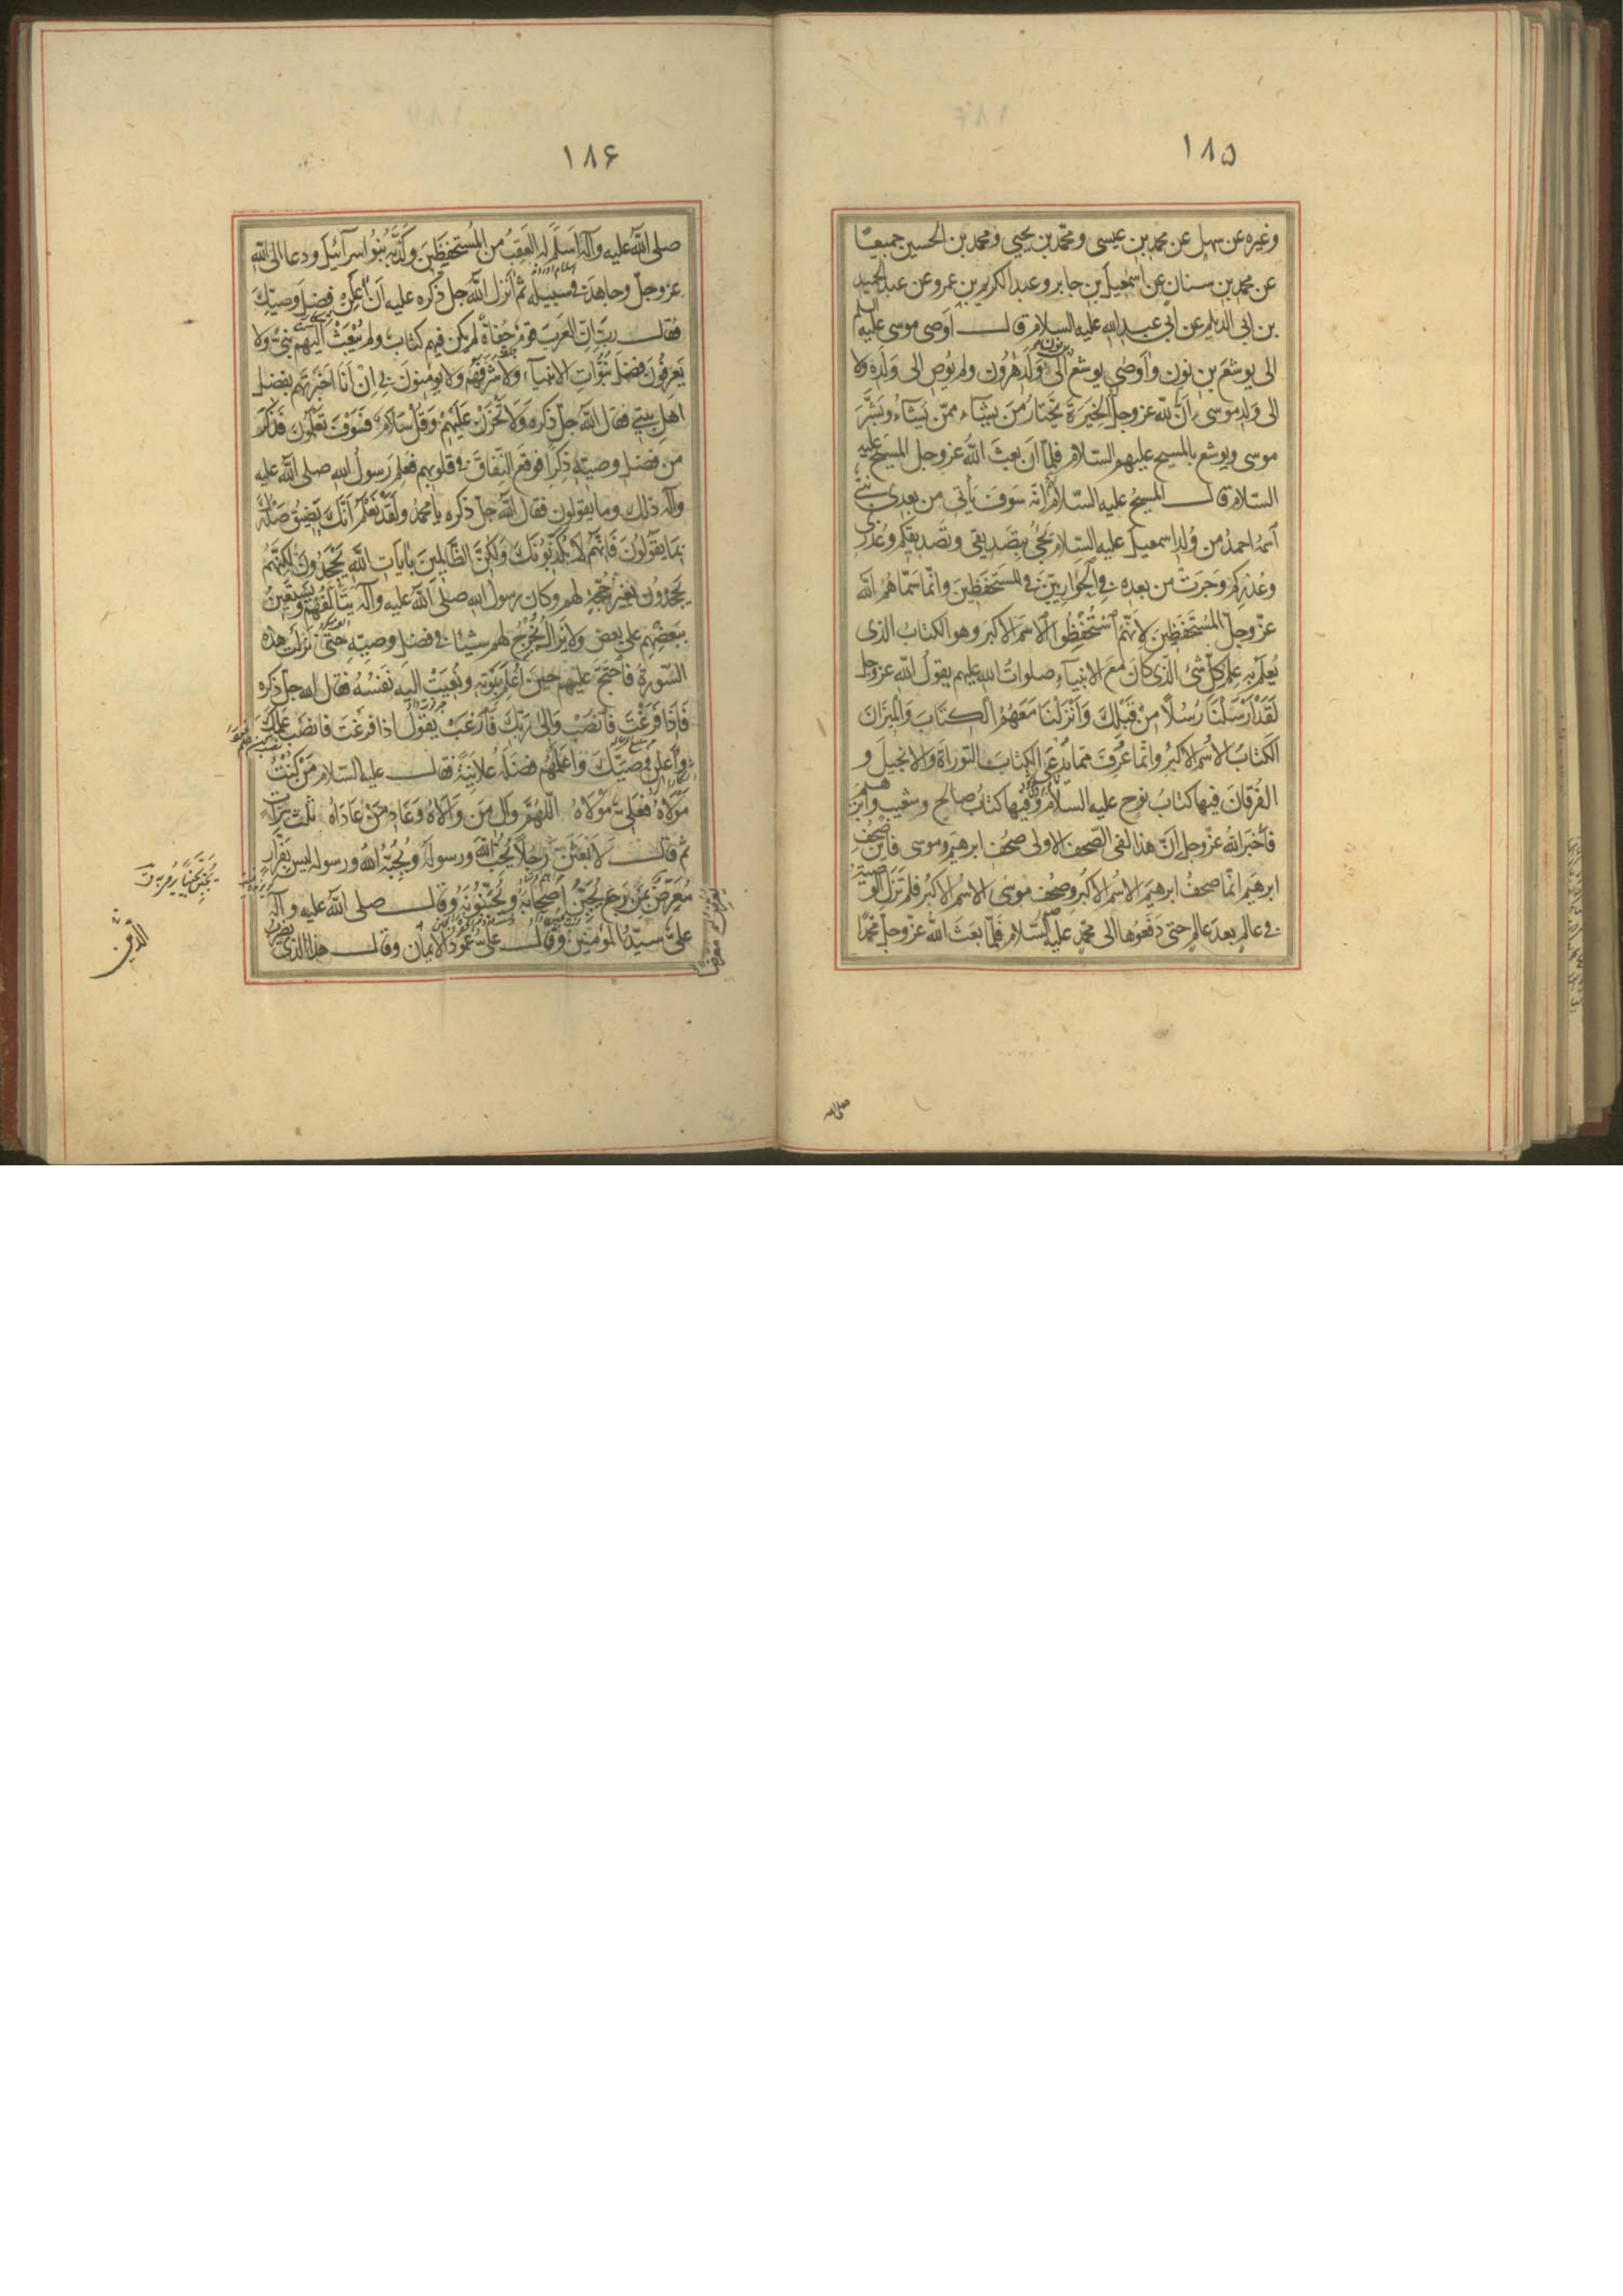 ١٨۵
وغيره عن سهل عن محمد بن عيسى ومحمّد بن يحيى ومحمد بن الحسين جميعًا
عن محمد بن سنان عن اسمعيل بن جابر وعبد الكريم بن عمرو عن عبد الحميد
بن ابى الديلم عن ابى عبد الله عليه السلام قال اَوصى موسى عليه السلم
الى يوشع بن نون واَوصى يوشع بن نون الى وَلَدِ هٰرُون ولم يُوصِ الى وَلَدِه ولا
الى وَلَدِ موسى اَنّ لله عز وجل الخِيَرَةَ يَختارُ مَن يشاء ممّن يشاء وبَشَّرَ
موسى ويوشع بالمسيح عليهم السّلام فلمّا اَن بعثَ اللهُ عز وجل المسيحَ عليه
السّلام قال المسيحُ عليه السّلام اِنّه سَوفَ يَأتى من بعدى نبىّ
اسمُه احمدُ من وُلدِ اسمعيلَ عليه السّلام يَجئُ بتصديقى وتصديقكم وعُذرى
وعُذرِكم وجَرَتْ من بعده فى الحَوارِيّينَ فى المستَحفَظينَ وانّما سَمّاهُمُ اللّه
عزّ وجلّ المُستَحفَظينَ لاِنّهم اُستُحفِظُوا الاسمَ الاكبرَ وهو الكتابُ الذى
يُعلَمُ بِه عِلمُ كلّ شئ الّذى كانَ مَعَ الانبياءِ صلواتُ الله عليهم يقولُ اللّه عزوجل
لَقَدْ اَرْسَلْنَا رُسُلاً مِنْ قَبْلِكَ وَاَنْزَلْنَا مَعَهُمُ الْكِتَابَ وَالْمِيزَانَ
الكتابُ الاسمُ الاكبرُ وانّما عُرِفَ ممّا يُدعَى الكتابَ التوراةُ والانجيلُ و
الفُرقانُ فيها كتابُ نوحٍ عليه السّلام وفيها كتابُ صالحٍ وشعيبٍ وابرهيم
فاَخبَرَ اللهُ عزّ وجل اِنّ هذا لفى الصّحف الاولى صحُف ابرهيم وموسى فاينَ صُحُفُ
ابرهيم انّما صحفُ ابرهيمَ الاسمُ الاكبرُ وصحُف موسى الاسمُ الاكبرُ فلم تَزَلِ الوصيّةُ
فى عالمٍ بعدَ عالمٍ حتى دَفَعُوها الى محمّدٍ عليه السّلام فلمّا بعَثَ اللهُ عزّ وجلّ محمّدًا
صلى الله
١٨۶
صلى اللّه عليه وآله اَسلَمَ له العَقِبُ من المُستحفِظينَ وكَذَّبَه بَنُو اسرآئيلَ ودعا الى اللّه
عز وجلّ وجاهَدَ فى سبيله ثمّ اَنزلَ اللّه جل ذكره عليه اَن اَعلِنْ فضلَ وصيّكَ
فقال ربّ اِنّ العَرَبَ قومٌ جُفاةٌ لم يكن فيهم كتابٌ ولم يُبْعَثْ اليهم نبىّ ولا
يَعرِفُونَ فضلَ نبُوّاتِ الانبيآء ولا شَرَفَهُم ولا يؤمِنونَ بى اِنْ اَنَا اخبَرتُهم بفضل
اهلِ بيتى فقال اللّه جلّ ذكره وَلَا تَحْزَنْ عَلَيْهِمْ وَقُلْ سَلَامٌ فَسَوْفَ تَعلَمُونَ فَذَكَرَ
من فضلِ وصيّه ذِكرًا فوَقَعَ النِّفاقُ فى قلوبهم فعَلِمَ رَسولُ اللهِ صلى اللّه عليه
وآله ذلك وما يقولون فقال اللّه جلّ ذكره يا محمدُ ولَقَدْ نَعْلَمُ اَنَّكَ يَضِيقُ صَدْرُكَ
بِمَا يَقُولُونَ فَاِنَّهُمْ لَا يُكَذِّبُونَكَ وَلَكِنَّ الظَّالِمِينَ بِاٰيَاتِ اللَّهِ يَجْحَدُونَ لكنّهم
يَجحدُونَ بغير حُجّةٍ لهم وكان رسولُ الله صلّى اللّه عليه وآله يتألّفُهم ويستعينُ
ببعضِهم على بعض ولا يَزالُ يُخرِجُ لهم شيئًا فى فضلِ وصيّه حتى نزلت هذه
السّورةُ فاَحتَجَّ عليهم حينَ اُعلِمَ بموتِه ونُعِيَتْ اليه نَفسُهُ فقال الله جلّ ذكره
فَاِذَا فَرَغْتَ فَانْصَبْ وَاِلى رَبِّكَ فَارْغَبْ يقولُ اذا فرغتَ فانصَب عَلَمَكَ
واَعلِن وصيّكَ واَعلِمهُم فضلَهُ عَلانيَةً فقال عليه السّلام مَن كنتُ
مَوْلَاهُ فعَلىٌّ مَوْلَاهُ اللّهُمَّ وَالِ مَن وَالَاهُ وَعَادِ مَنْ عَادَاهُ ثلث مرّات
ثم قال لَاَبعَثَنَّ رَجُلاً يُحِبُّ اللّهَ ورسولَهُ ويُحِبُّهُ اللهُ ورسوله ليس بفَرّارٍ
يُعَرِّضُ بمَن رَجَعَ يُجَبِّنُ اصحابَهُ ويُجَبِّنُونَهُ وقال صلى اللّه عليه وآله
علىّ سيّدُ المؤمنين وقال علىّ عَمُودُ الايمان وقال هذا الذى يضرب